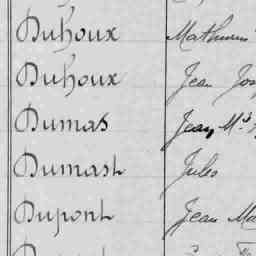 Duhoux Mathurin
Duhoux Jean Jos
Dumas Jean M.
Dumast Jules
Dupont Jean Ma